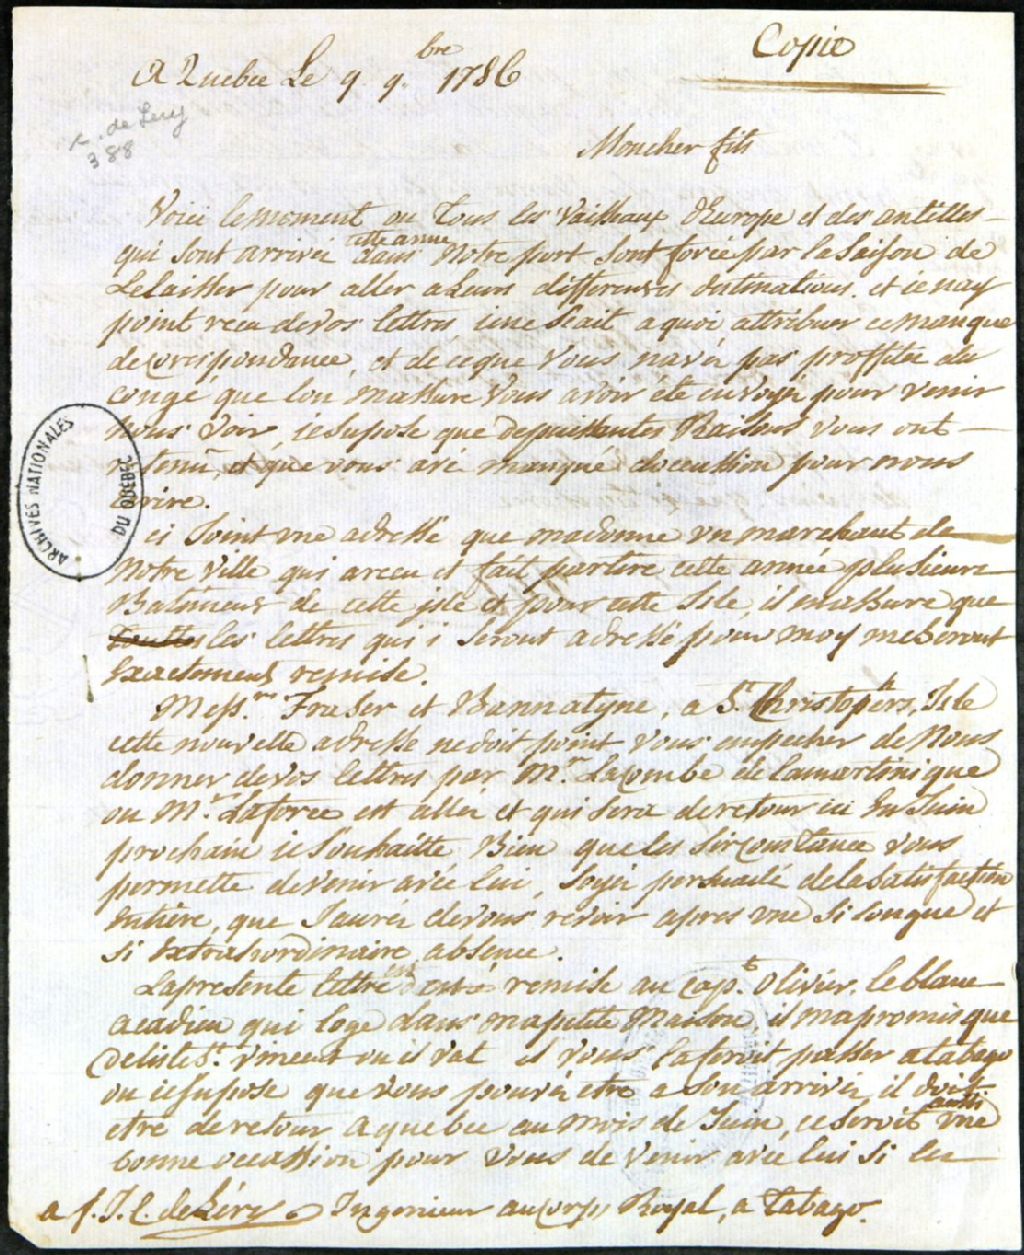 Copie
A Quebec Le 9. 9.bre 1786
de Lery
388
Moncher fils
Voici le moment ou Tous les Vaissaux d'Europe et des antilles
qui sont arrivée cette anné dans Notre port sont forcé par la saison de
Le laisser pour aller a Leurs differentes destinations. et ie nay
point recu de vos lettres, ie ne scait a quoi attribuer ce manque
de corespondance, et de ce que Vous navéz pas proffitée du
congé que lon massure Vous avoir été envoyé pour venir
Nous Voir, ie supose que de puissantes Raisons vous ont
tenu, et que vous avé manqué d'ocassion pour nous
Ecrire.
ci Joint une adresse que ma donne un marchant de
Notre Ville qui a recu et fait partire cette année plusieurs
Batiments de cette jsle et pour cette Isle, il massure que
toutes les lettres qui i seront adressé pour moy me seront
Exactement remise.
Mess.rs Fraser et Bannatyne, a S.t Christophers, Isle
cette nouvelle adresse ne doit point vous empecher de Nous
donner de vos lettres par M.r Lacombe de la martinique
ou M.r Laforce est allée et qui sera de retour ici En Juin
prochain ie souhaitte Bien que les sirconstance vous
permette de venir avéc lui, Soyéz persuadé de la satisfaction
Entiere, que J'auréz de vous revoir apres une si longue et
si Extrahordinaire absence.
La presente lettre remise au cap.t Olivier. le blanc
acadien qui loge dans ma petite Maison il ma promis que
de l'isle S.t Vincent ou il vat il vous la feroit passer a tabago
ou ie supose que vous pouvéz etre a son arrivéz, il doit
etre de retour a quebec au mois de Juin, ce seroit aussi une
bonne occassion pour vous de venir avéc lui si les
a f. J. C. de Léry Ingenieur au corps Royal, a Tabago.
ARCHIVES NATIONALES
DU QUEBEC